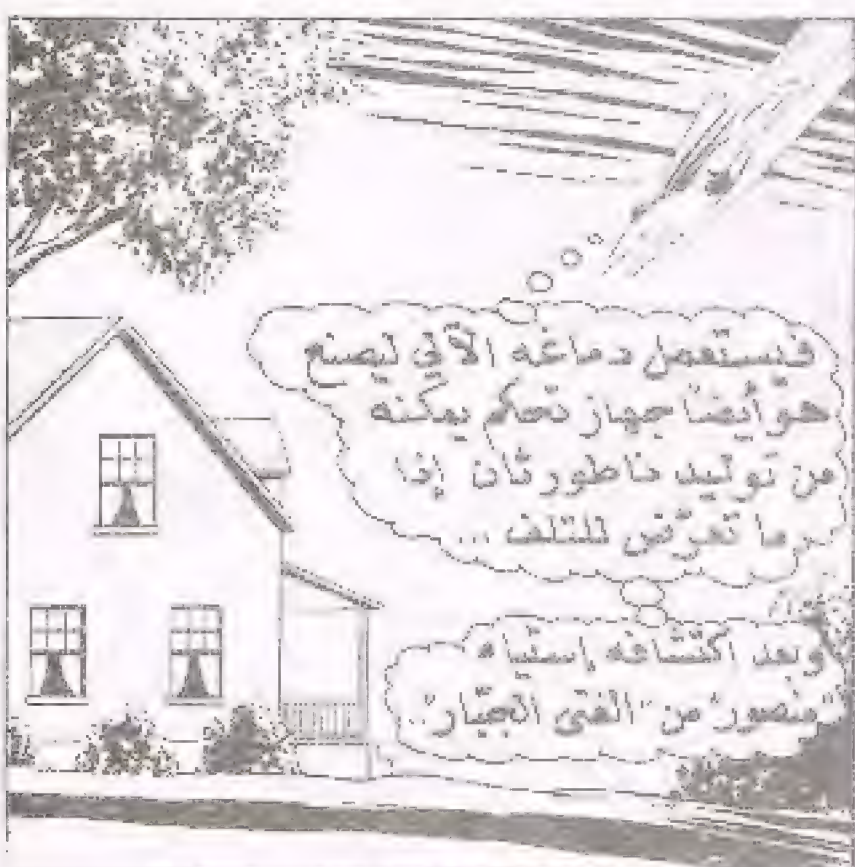 فيستعمل دماغه الآلي ليصنع
هو أيضاً جهاز تحكم يمكنه
من توليد ناطور ثان إذا
ما تعرّض للتلف ...
وبعد اكتشافه إستياء
"منصور" من "الفتى الجبّار"..